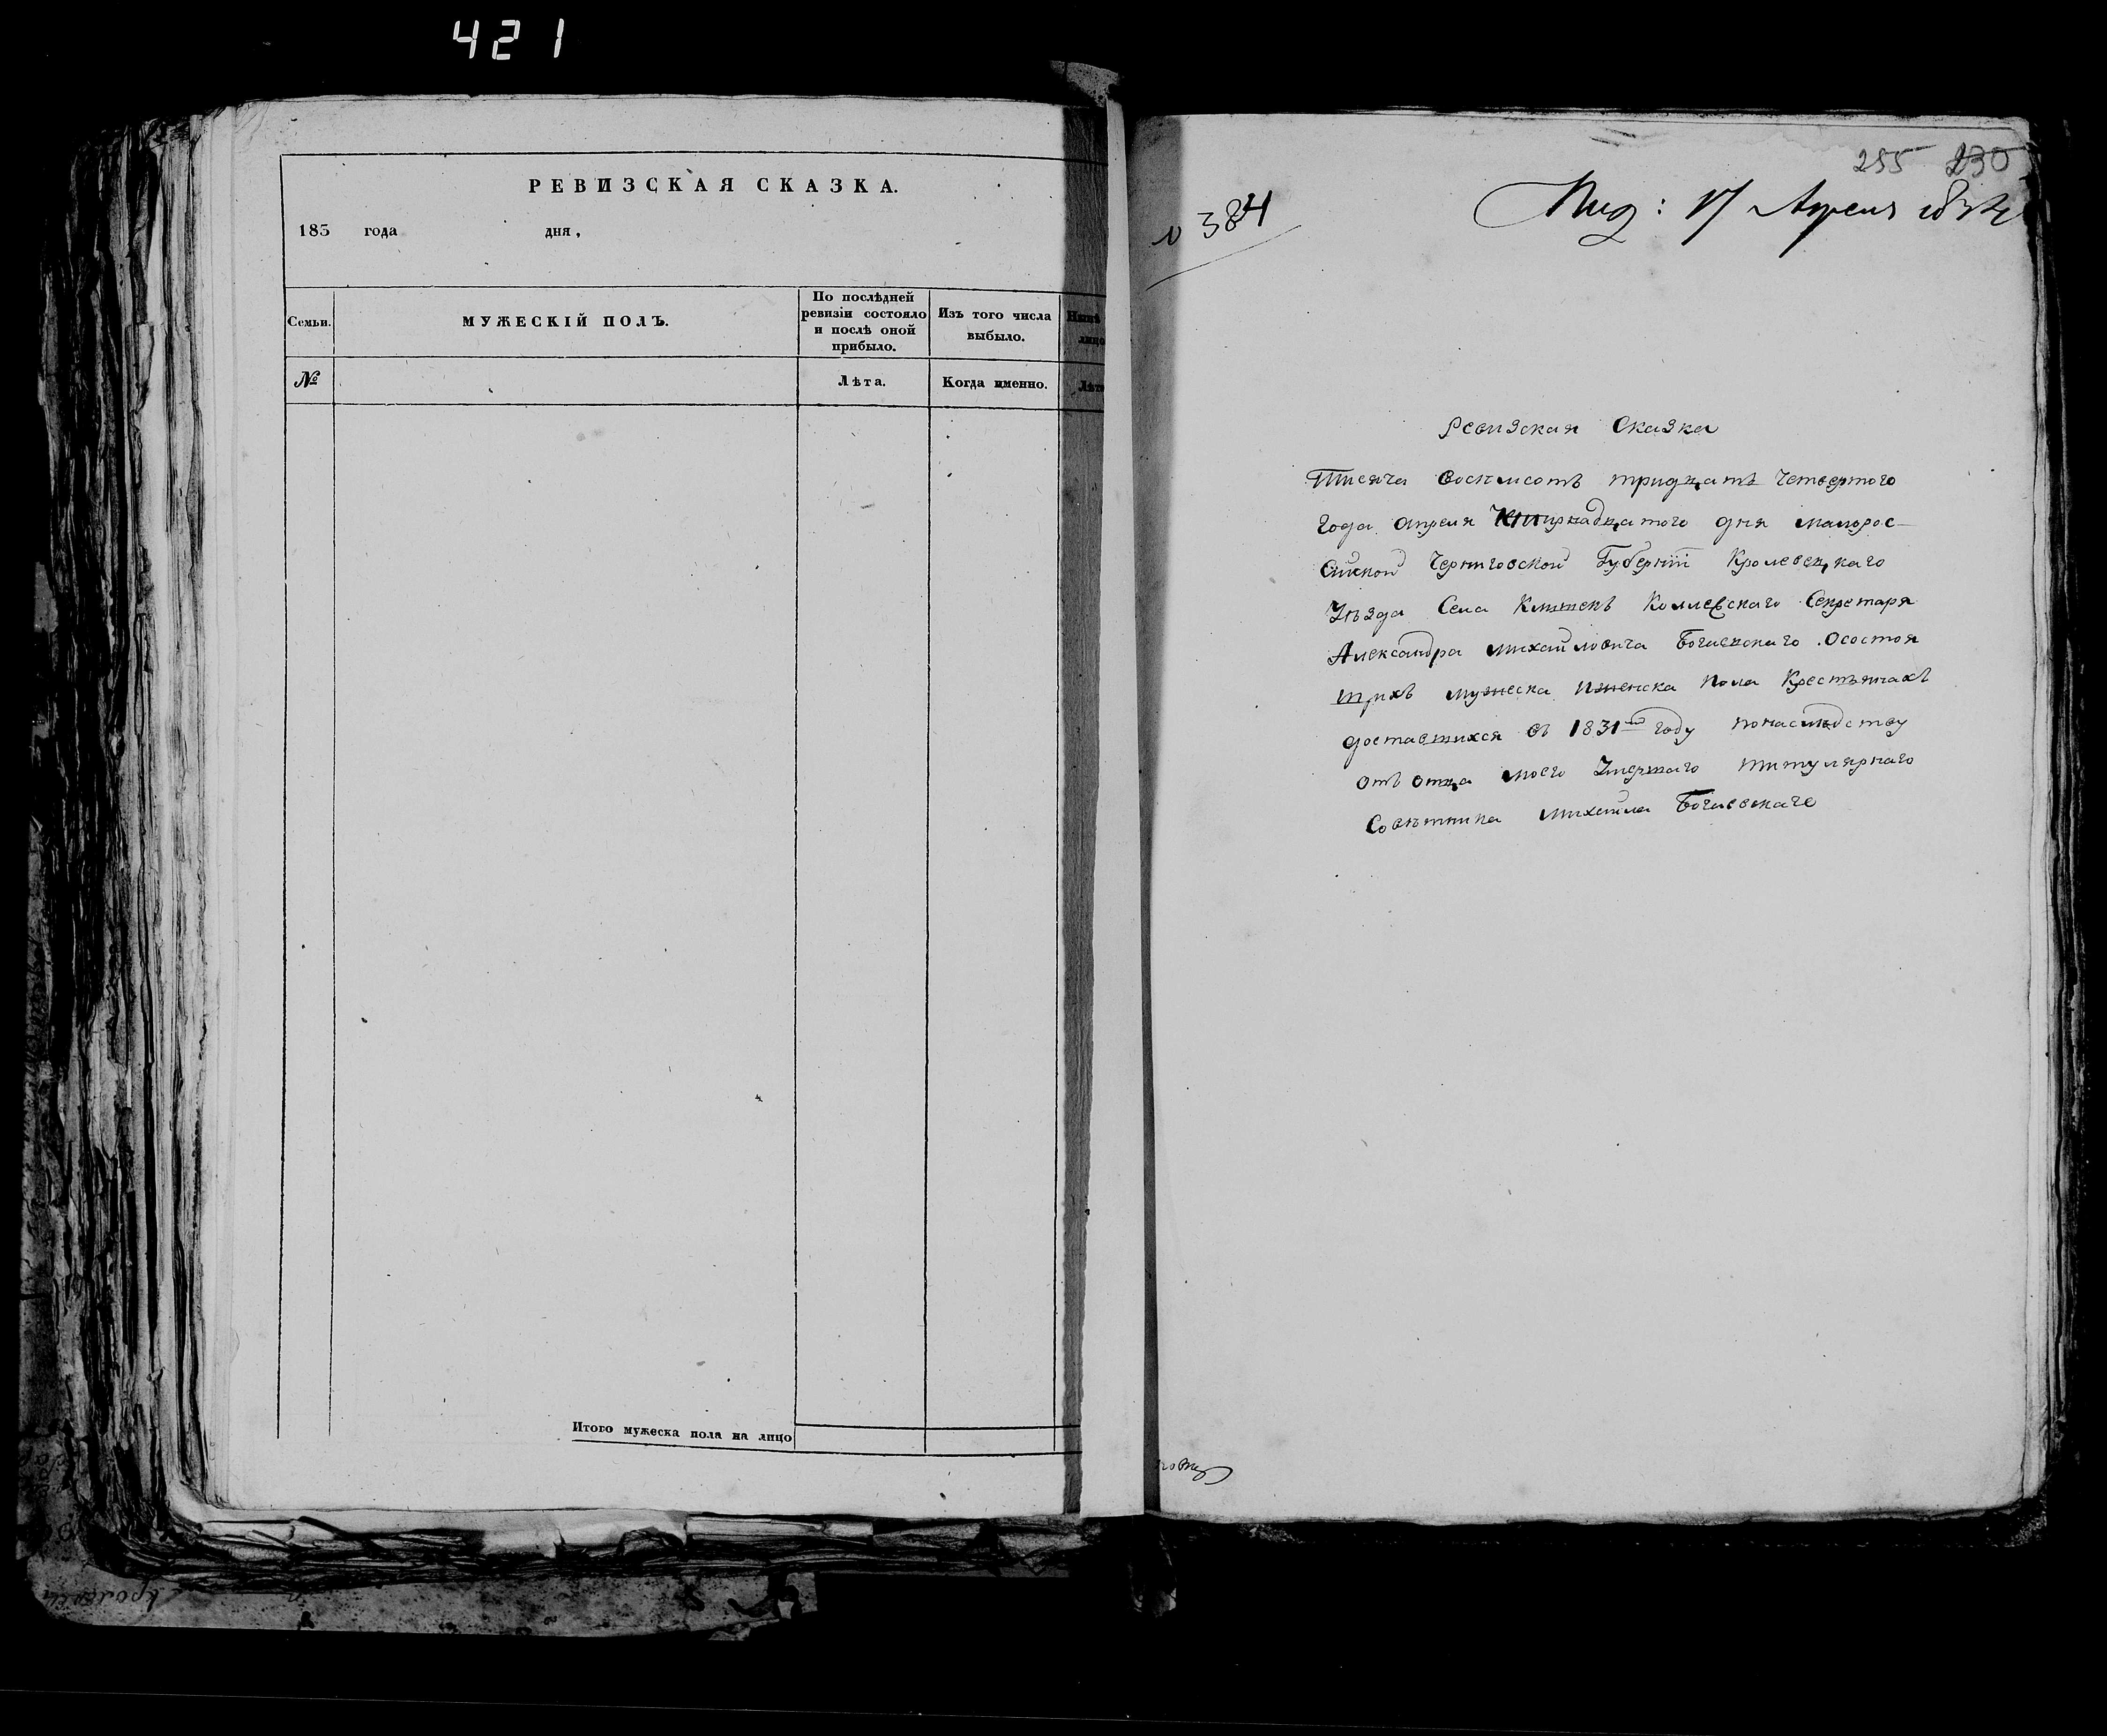 421
РЕВИЗСКАЯ СКАЗКА.
183 года дня,
Семьи.
МУЖЕСКІЙ ПОЛЪ.
По послѣдней ревизіи состояло и послѣ оной прибыло.
Изъ того числа выбыло.
№
Лѣта.
Когда именно.
Итого мужеска пола на лицо
255 230
N 384
17 Апреля 1834
Ревизская Сказка
Тисяча восемсотъ тридцать Четвертого
Года апреля дня малорос-
сійской Черниговской Губерніи Кролевецкаго
Уѣзда Села Клишекъ Коллежскаго Секретаря
Александра Михайловича Осостоя
щихъ мужеска иженска Пола Крестьянахъ
доставшихся въ 1831мъ году понаслѣдству
отъ отца моего Умершаго титулярнаго
Совѣтника Михайла